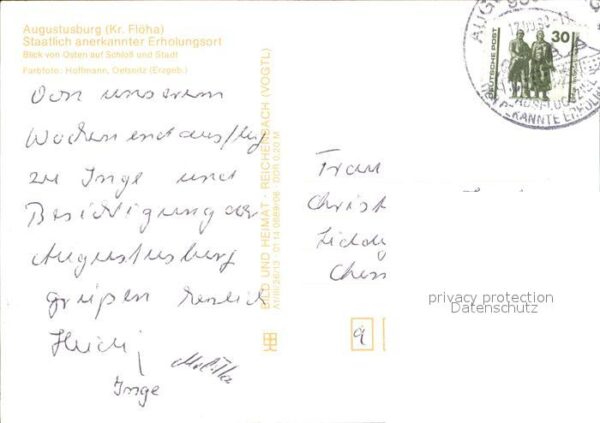 Augustusburg (Kr. Flöha)
Staatlich anerkannter Erholungsort
Blick von Osten auf Schloß und Stadt
Farbfoto: Hoffmann, Oelsnitz (Erzgeb.)
Von unserem
Wochenendausflug
zu Inge und
Besichtigung der
Augustusburg
grüßen herzlich
Heidi
Inge
Melitta
BILD UND HEIMAT · REICHENBACH (VOGTL)
DDR 0,20 M
DEUTSCHE POST
30
Frau
Christ
Che
9
privacy protection
Datenschutz